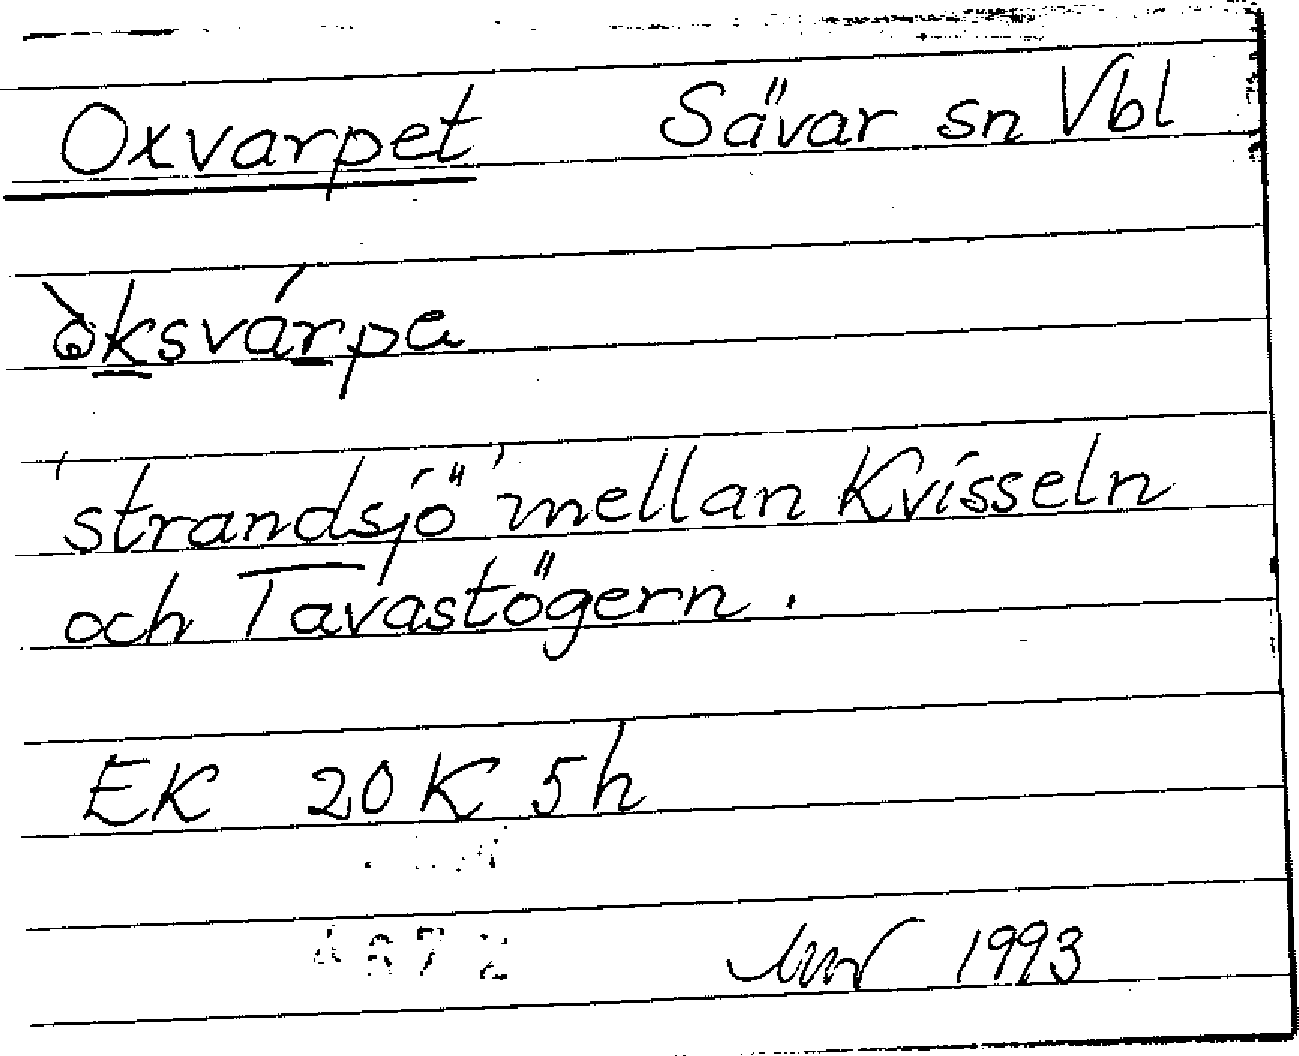 Oxvarpet Sävar sn Vbl
òksvárpa
'strandsjö' mellan Kvisseln
och Tavastögern.
EK 20K 5h
1993